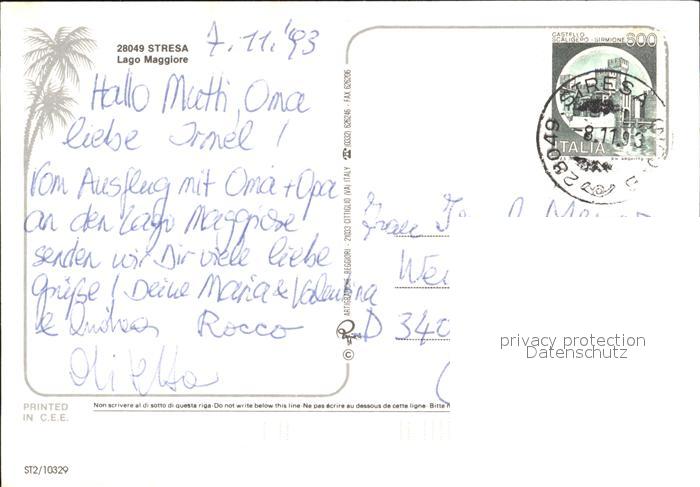 28049 STRESA
Lago Maggiore
7.11.'93
Hallo Mutti, Oma
liebe Irmel!
Vom Ausflug mit Oma + Opa
an den Lago Maggiore
senden wir Dir viele liebe
Grüße! Deine Maria & Valentina
& Andreas Rocco
CASTELLO
SCALIGERO - SIRMIONE
600
ITALIA
STRESA
-8.11.93
28049
Frau
D 340
privacy protection
Datenschutz
ARTIGRAFICHE REGGIORI - 21033 CITTIGLIO (VA) ITALY ☎ (0332) 626245 - FAX 626206
©
PRINTED
IN C.E.E.
Non scrivere al di sotto di questa riga - Do not write below this line - Ne pas écrire au dessous de cette ligne - Bitte
ST2/10329